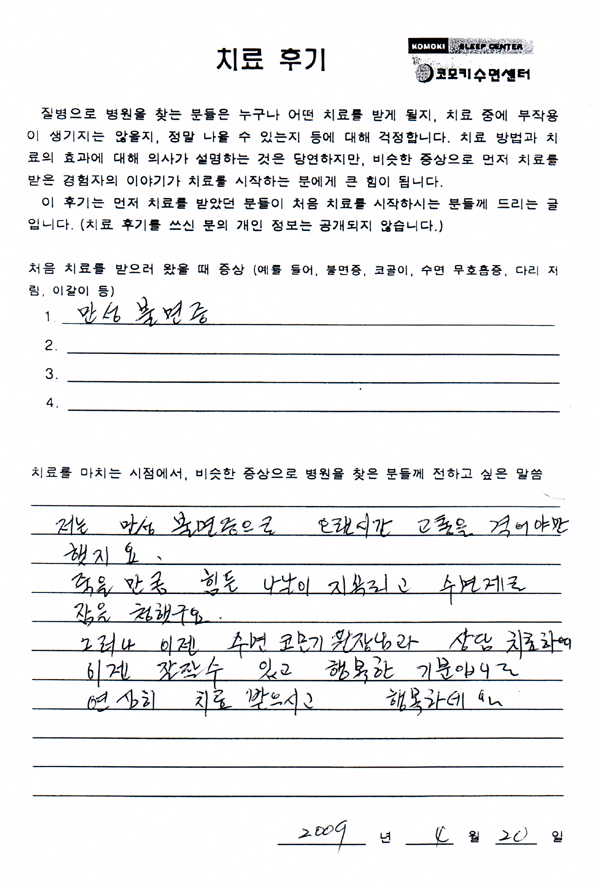 치료 후기
KOMOKI SLEEP CENTER
코모키수면센터
질병으로 병원을 찾는 분들은 누구나 어떤 치료를 받게 될지, 치료 중에 부작용
이 생기지는 않을지, 정말 나을 수 있는지 등에 대해 걱정합니다. 치료 방법과 치
료의 효과에 대해 의사가 설명하는 것은 당연하지만, 비슷한 증상으로 먼저 치료를
받은 경험자의 이야기가 치료를 시작하는 분에게 큰 힘이 됩니다.
이 후기는 먼저 치료를 받았던 분들이 처음 치료를 시작하시는 분들께 드리는 글
입니다. (치료 후기를 쓰신 분의 개인 정보는 공개되지 않습니다.)
처음 치료를 받으러 왔을 때 증상 (예를 들어, 불면증, 코골이, 수면 무호흡증, 다리 저
림, 이갈이 등)
1. 만성 불면증
2.
3.
4.
치료를 마치는 시점에서, 비슷한 증상으로 병원을 찾은 분들께 전하고 싶은 말씀
저는 만성 불면증으로 오랜시간 고통을 격어야만
했지요.
죽을 만큼 힘든 나날이 지속되고 수면제로
잠을 청했구요.
그러나 이젠 수면 코모키 원장님과 상담 치료하여
이젠 잘잘수 있고 행복한 기분입니다
열심히 치료 받으시고 행복하세요
2009 년 4 월 20 일